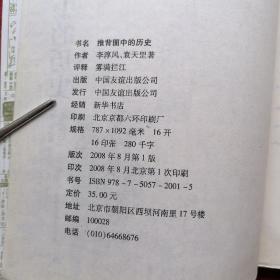 书名 推背图中的历史
作者 李淳风、袁天罡著
评释 雾满拦江
出版 中国友谊出版公司
发行 中国友谊出版公司
经销 新华书店
印刷 北京京都六环印刷厂
规格 787×1092毫米 16开
16印张 280千字
版次 2008年8月第1版
印次 2008年8月北京第1次印刷
书号 ISBN 978-7-5057-2001-5
定价 35.00元
地址 北京市朝阳区西坝河南里17号楼
邮编 100028
电话 (010)64668676